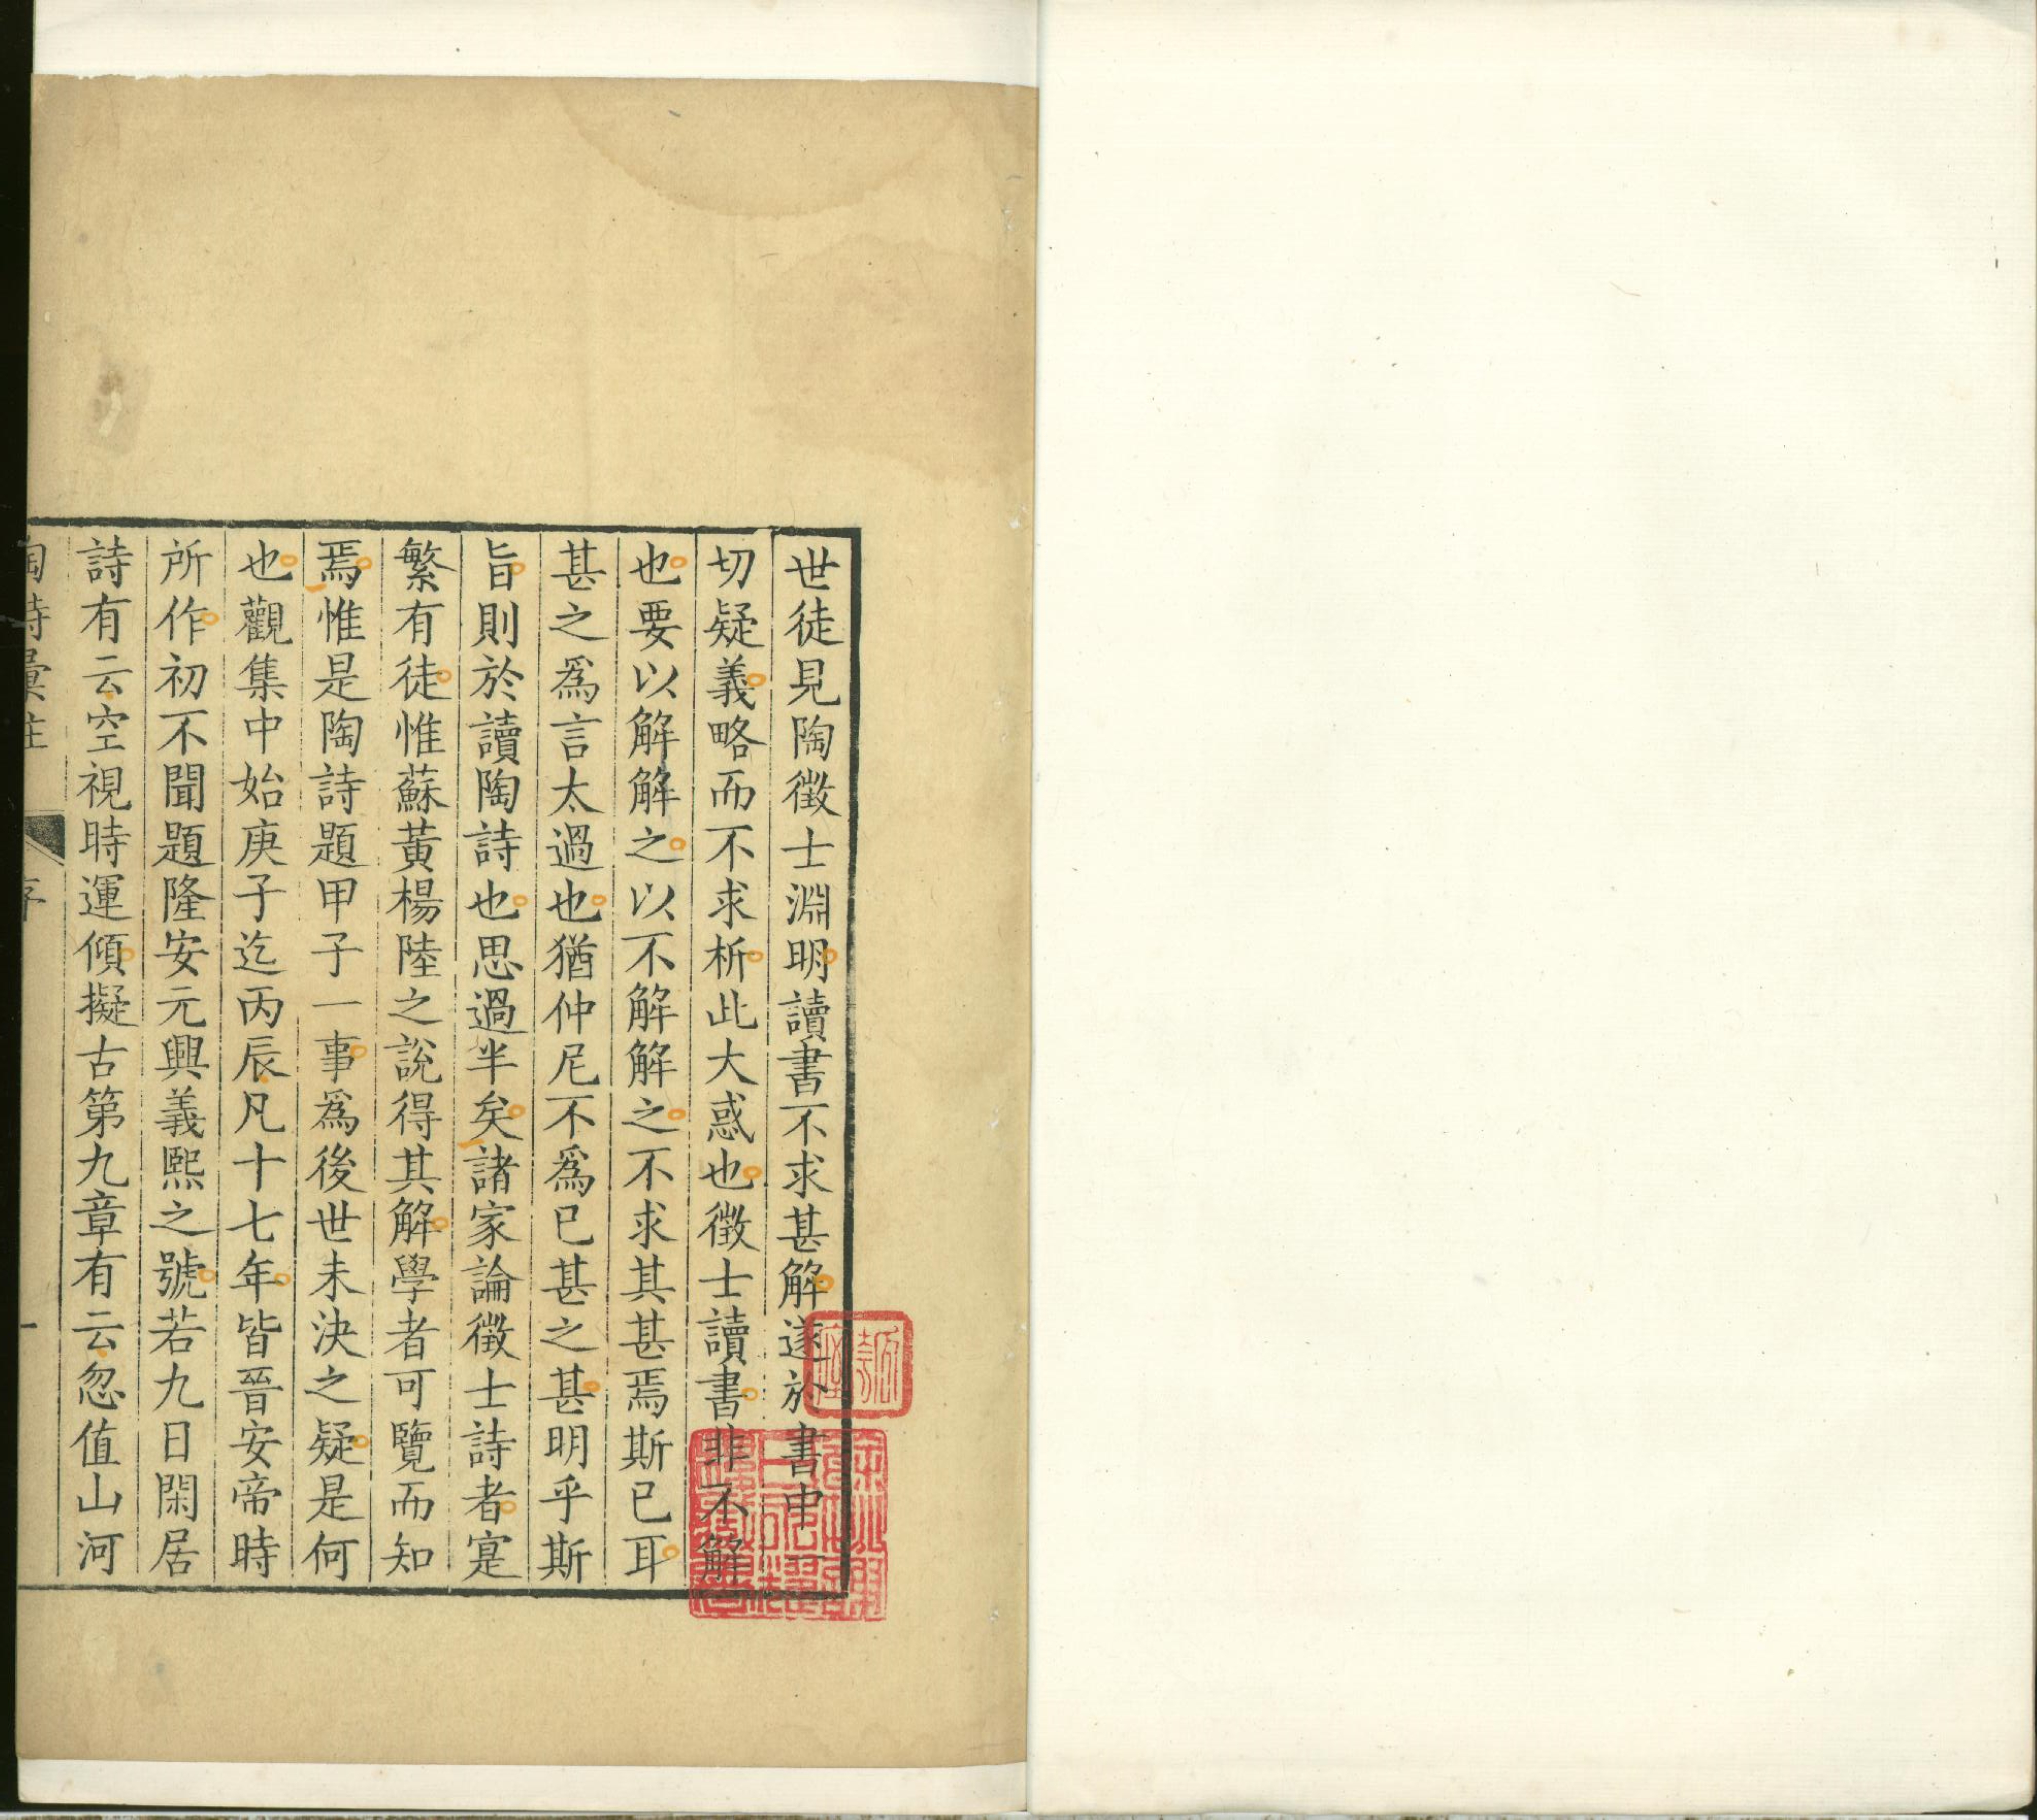 世徒見陶徵士淵明讀書不求甚解遂於書中一
切疑義略而不求析此大惑也徵士讀書非不解
也要以解解之以不解解之不求其甚焉斯已耳
甚之爲言太過也猶仲尼不爲已甚之甚明乎斯
旨則於讀陶詩也思過半矣諸家論徵士詩者寔
繁有徒惟蘇黃楊陸之說得其解學者可覽而知
焉惟是陶詩題甲子一事爲後世未決之疑是何
也觀集中始庚子迄丙辰凡十七年皆晉安帝時
所作初不聞題隆安元興義熙之號若九日閑居
詩有云空視時運傾擬古第九章有云忽值山河
陶詩彙注 序 一